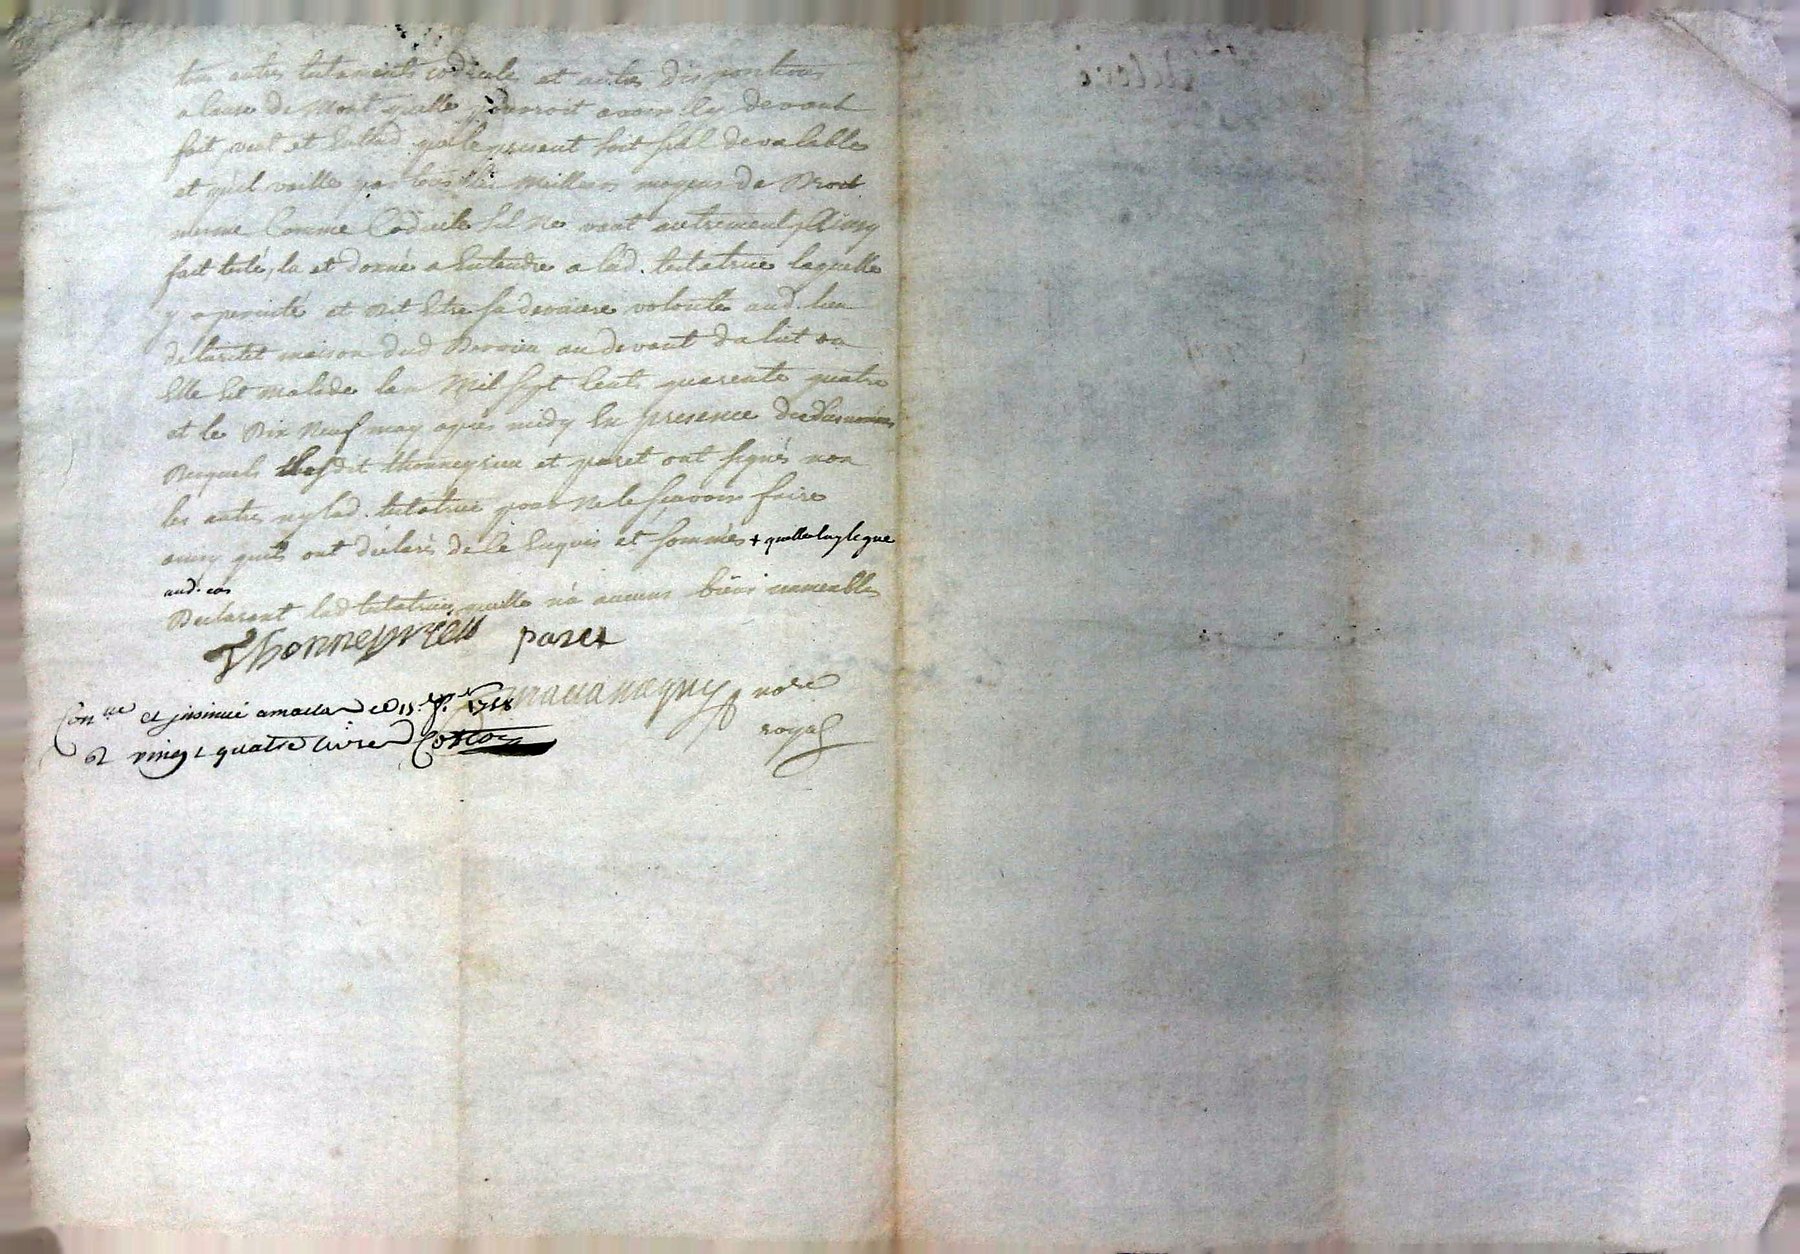 tous autres testaments codicile et autres dispositions
a cause de Mort qu'elle pourroit avoir cy devant
fait, veut et entend que le present soit seul de valable
et qu'il vaille par tous les meilleurs moyens de Droit
mesme Comme Codicile s'il ne vaut autrement, Ainsy
fait testé, lu et donné a Entendre a lad. testatrice laquelle
y a persisté et dit Estre sa derniere volonté aud. lieu
maison dud au devant du lict ou
Elle Est malade lan Mil sept Cents quarente quatre
et le Dix Neuf may apres midy En presence des
Desquels thonneyrieu et paret ont signés non
les autres ny lad. testatrice pour ne le scavoir faire
ainsy quils ont déclarés de ce Enquis et sommés + quelle
aud. cas
Declarant lad testatrice quelle n'a aucuns biens immeubles
Thonneyrieu paret
no.re
royal
Con.lle et jnsinué
vingt quatre livres